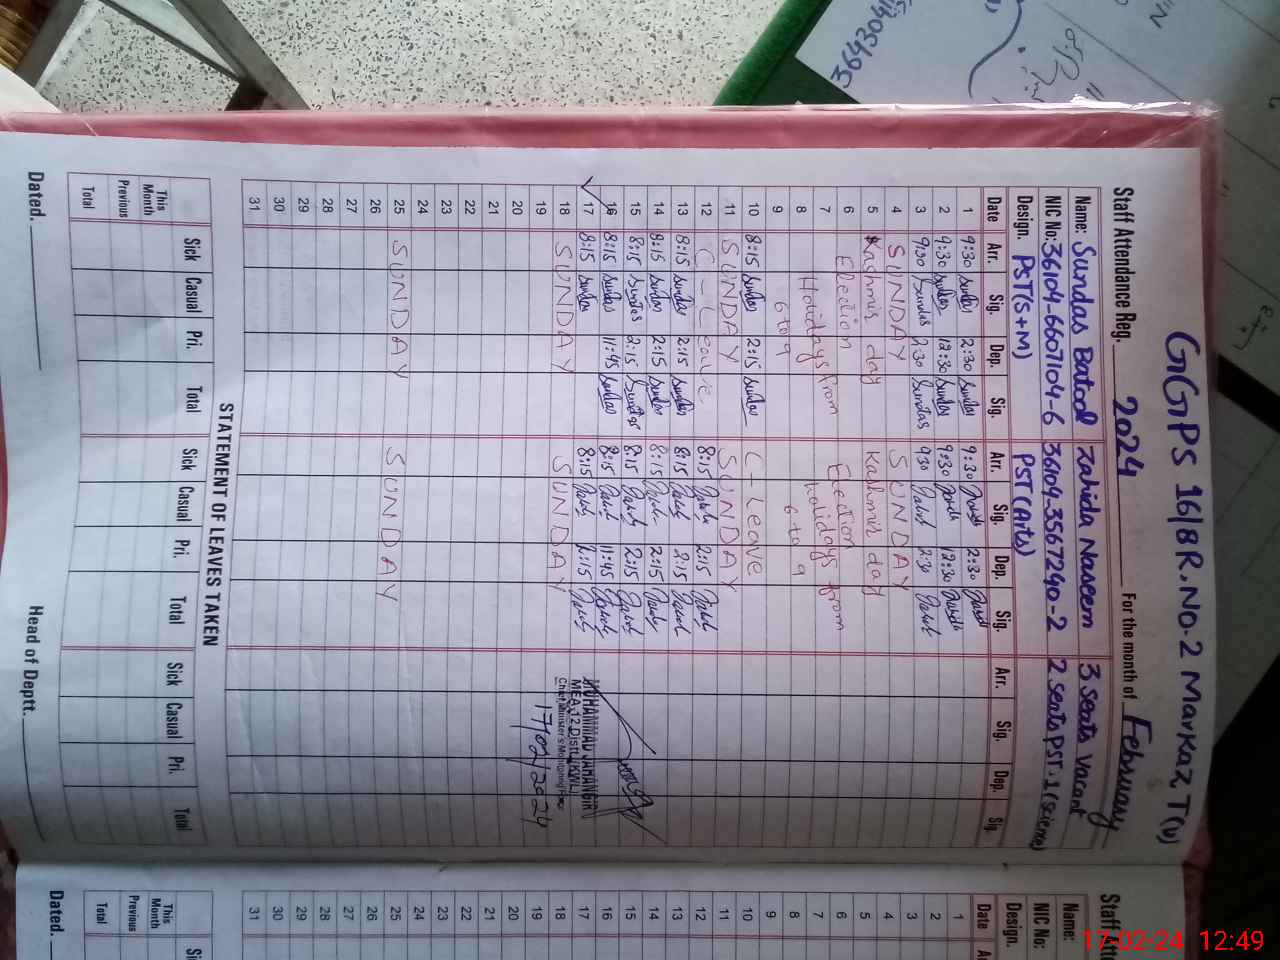 GGPS 16/8R.NO-2 Markaz T(V)
Staff Attendance Reg. 2024 For the month of February
Name: Sundas Batool Zahida Naseem 3 seats vacant
NIC No: 36104-6607104-6 36104-3567240-2 2 seats PST. 1 (science)
Design. PST(S+M) PST(Arts)
Date Arr. Sig. Dep. Sig. Arr. Sig. Dep. Sig. Arr. Sig. Dep. Sig.
1 9:30 Sundas 2:30 Sundas 9:30 2:30
2 9:30 Sundas 12:30 Sundas 9:30 12:30
3 9:30 Sundas 2:30 Sundas 9:30 2:30
4 SUNDAY SUNDAY
5 Kashmir day Kashmir day
6 Election Election
7 Holidays from holidays from
8 6 to 9 6 to 9
9
10 8:15 Sundas 2:15 Sundas C-Leave
11 SUNDAY SUNDAY
12 C-Leave 8:15 2:15
13 8:15 Sundas 2:15 Sundas 8:15 2:15
14 8:15 Sundas 2:15 Sundas 8:15 2:15
15 8:15 Sundas 2:15 Sundas 8:15 2:15
16 8:15 Sundas 11:45 Sundas 8:15 11:45
17 8:15 Sundas 8:15 2:15
MUHAMMAD JAHANGIR
MEA,12 Distt.(KWL)
Chief Minister's Monitoring Force
17/02/2024
18 SUNDAY SUNDAY
19
20
21
22
23
24
25 SUNDAY SUNDAY
26
27
28
29
30
31
STATEMENT OF LEAVES TAKEN
Sick Casual Pri. Total Sick Casual Pri. Total Sick Casual Pri. Total
This Month
Previous
Total
Dated. Head of Deptt.
Staff Atte
Name:
NIC No:
Design.
Date A
1
2
3
4
5
6
7
8
9
10
11
12
13
14
15
16
17
18
19
20
21
22
23
24
25
26
27
28
29
30
31
Si
This Month
Previous
Total
Dated.
3643041
17-02-24 12:49